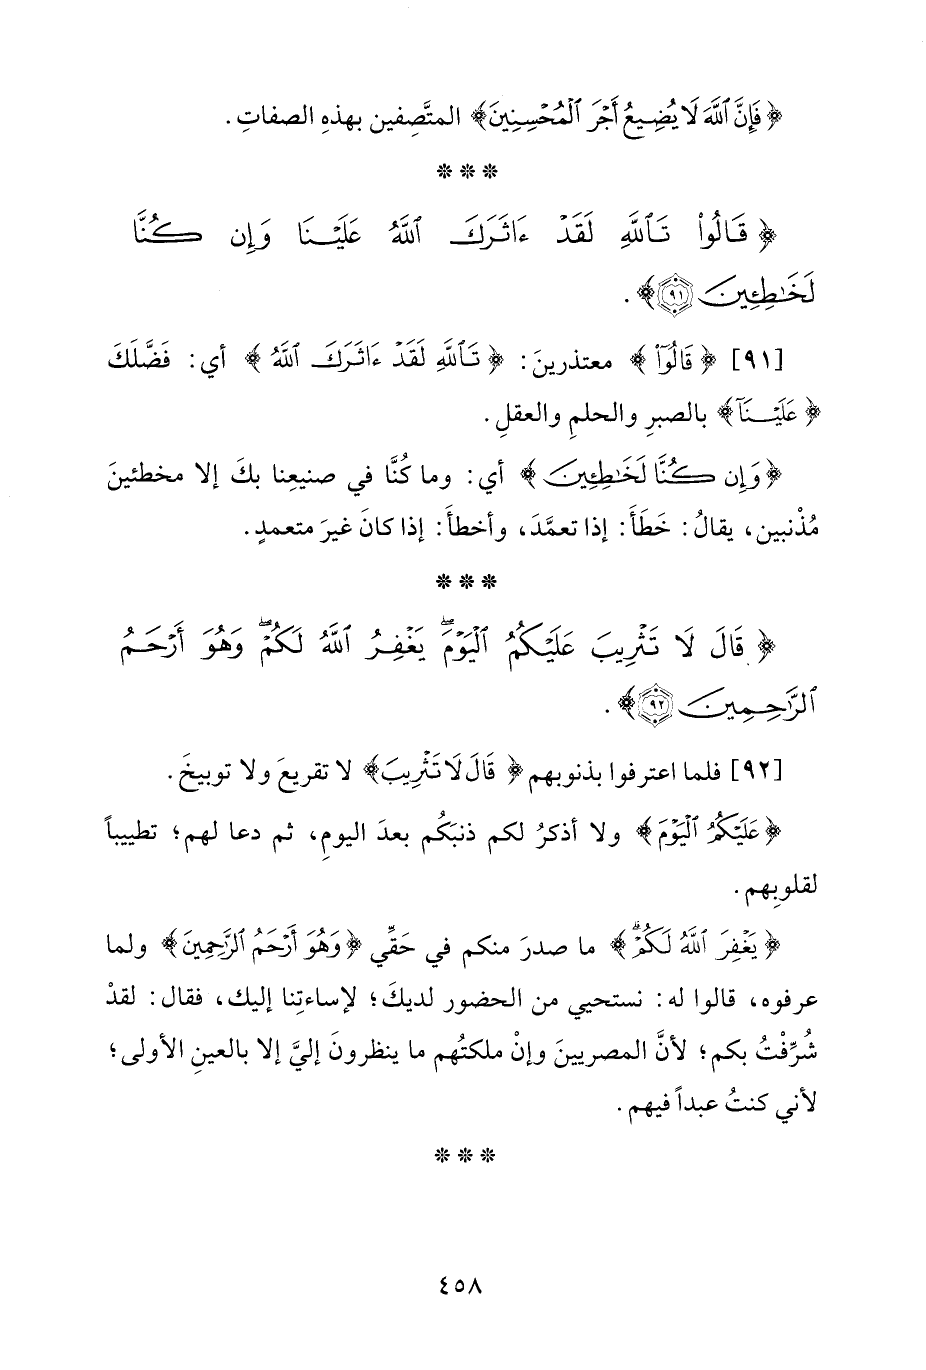 ﴿فَإِنَّ ٱللَّهَ لَا يُضِيعُ أَجْرَ ٱلْمُحْسِنِينَ﴾ المتَّصِفين بهذهِ الصفاتِ.
* * *
﴿قَالُوا۟ تَٱللَّهِ لَقَدْ ءَاثَرَكَ ٱللَّهُ عَلَيْنَا وَإِن كُنَّا
لَخَـٰطِـِٔينَ ۝٩١﴾.
[٩١] ﴿قَالُوٓا۟﴾ معتذرينَ: ﴿تَٱللَّهِ لَقَدْ ءَاثَرَكَ ٱللَّهُ﴾ أي: فَضَّلَكَ
﴿عَلَيْنَآ﴾ بالصبرِ والحلمِ والعقلِ.
﴿وَإِن كُنَّا لَخَـٰطِـِٔينَ﴾ أي: وما كُنَّا في صنيعِنا بكَ إلا مخطئينَ
مُذْنبين، يقالُ: خَطَأَ: إذا تعمَّدَ، وأخطأَ: إذا كانَ غيرَ متعمدٍ.
* * *
﴿قَالَ لَا تَثْرِيبَ عَلَيْكُمُ ٱلْيَوْمَ ۖ يَغْفِرُ ٱللَّهُ لَكُمْ ۖ وَهُوَ أَرْحَمُ
ٱلرَّٰحِمِينَ ۝٩٢﴾.
[٩٢] فلما اعترفوا بذنوبهم ﴿قَالَ لَا تَثْرِيبَ﴾ لا تقريعَ ولا توبيخَ.
﴿عَلَيْكُمُ ٱلْيَوْمَ﴾ ولا أذكرُ لكم ذنبَكُم بعدَ اليومِ، ثم دعا لهم؛ تطييباً
لقلوبِهم.
﴿يَغْفِرَ ٱللَّهُ لَكُمْ ۖ﴾ ما صدرَ منكم في حَقِّي ﴿وَهُوَ أَرْحَمُ ٱلرَّٰحِمِينَ﴾ ولما
عرفوه، قالوا له: نستحيي من الحضور لديكَ؛ لإساءتِنا إليك، فقال: لقدْ
شُرِّفْتُ بكم؛ لأنَّ المصريينَ وإنْ ملكتُهم ما ينظرونَ إليَّ إلا بالعينِ الأولى؛
لأني كنتُ عبداً فيهم.
* * *
٤٥٨